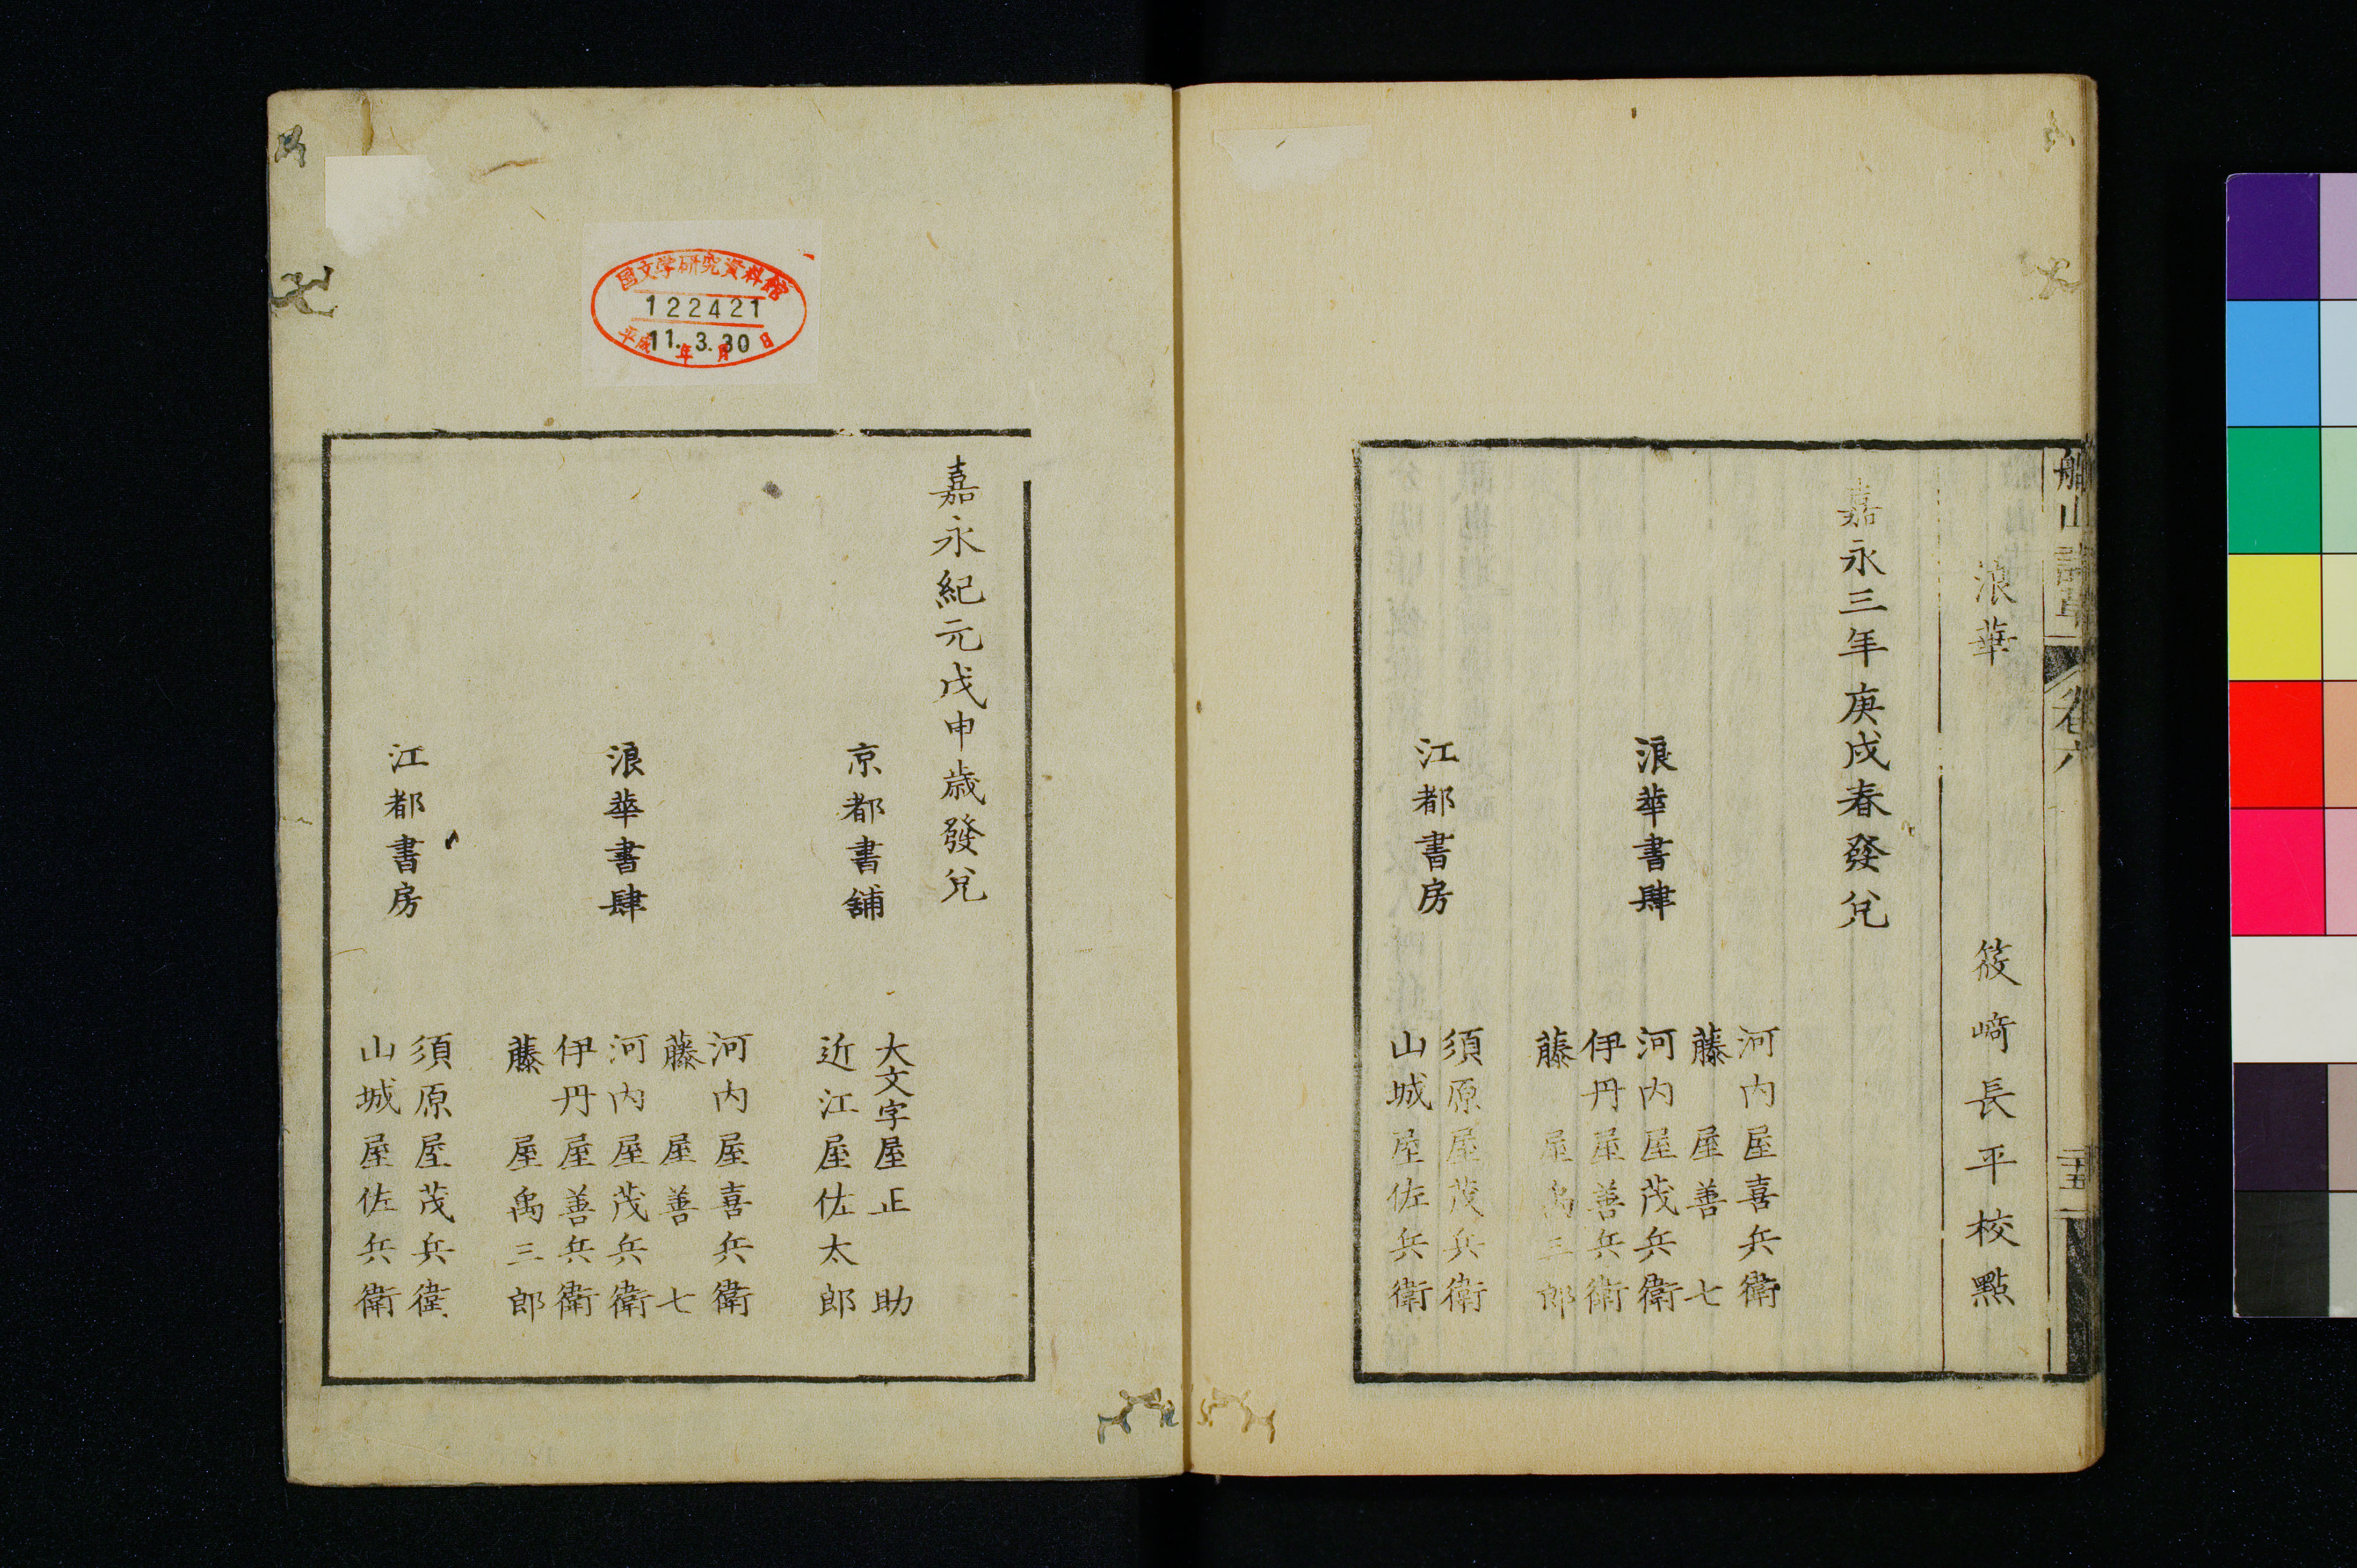 船山詩草
卷六
二十五
浪華 筱崎長平校點
嘉永三年庚戌春發兌
浪華書肆
河内屋喜兵衛
藤屋善七
河内屋茂兵衛
伊丹屋善兵衛
藤屋禹三郎
江都書房
須原屋茂兵衛
山城屋佐兵衛
国文学研究資料館
122421
平成11年3月30日
嘉永紀元戊申歳發兌
京都書舗
大文字屋正助
近江屋佐太郎
浪華書肆
河内屋喜兵衛
藤屋善七
河内屋茂兵衛
伊丹屋善兵衛
藤屋禹三郎
江都書房
須原屋茂兵衛
山城屋佐兵衛